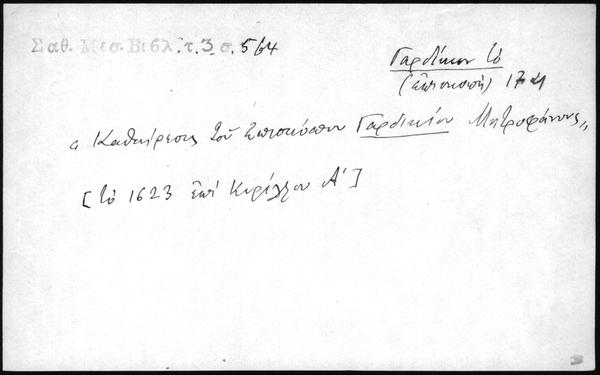 Σαθ. Μεσ. Βιβλ. τ. 3 σ. 564
Γαρδίκιον τό
(ἐπισκοπή)
"Καθαίρεσις τοῦ ἐπισκόπου Γαρδικίου Μητροφάνους"
[τῷ 1623 ἐπί Κυρίλλου Α']